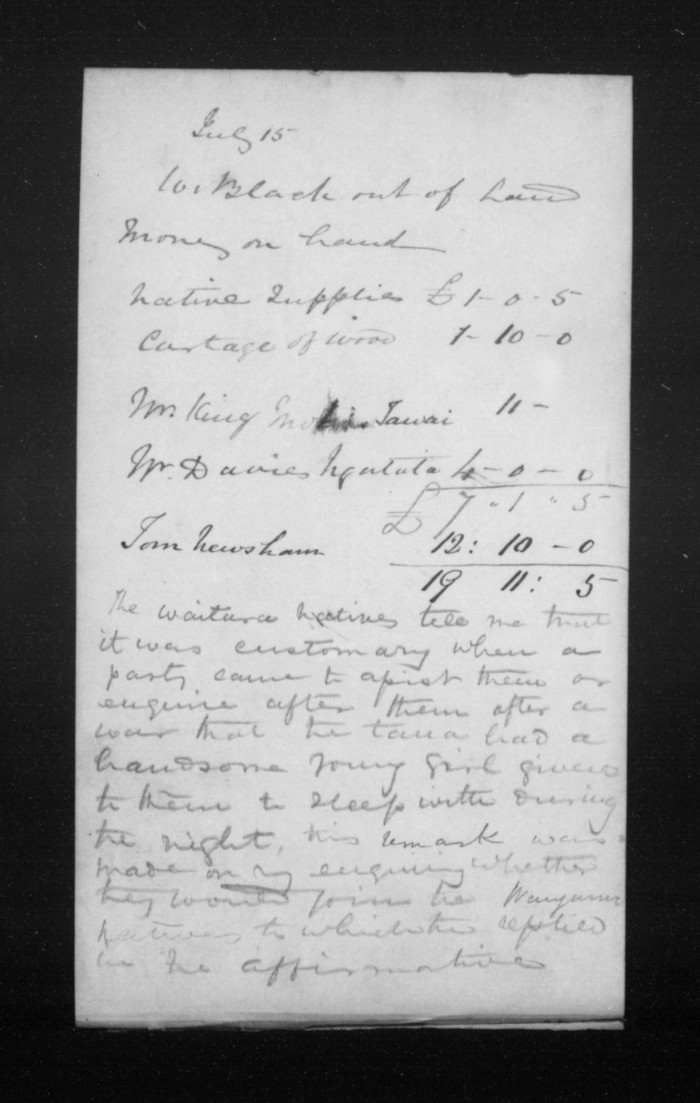 July 15
W. Black out of hand
Money on hand
Native Supplies £ 1 - 0 - 5
Cartage of wood 1 - 10 - 0
Mr. King Tawai 11 -
Mr. Davies Ngatata 4 - 0 - 0
£ 7 " 1 " 5
Tom Newsham 12 : 10 - 0
19 11 : 5
The waitara natives tell me that
it was customary when a
party came to assist them or
enquire after them after a
war that the taua had a
handsome young girl given
to them to sleep with during
the night, this remark was
made on my enquiring whether
they would join the Wanganui
natives to which the replied
in the affirmative